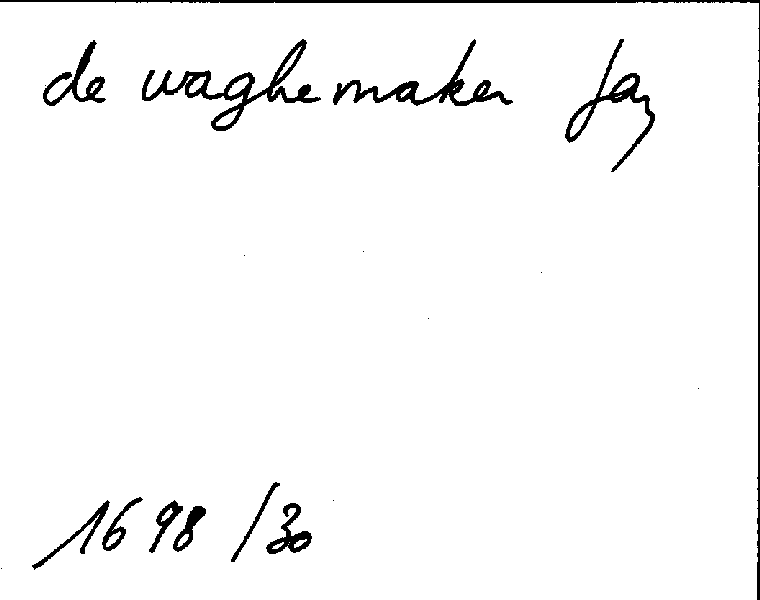 de waghemaker Jan
1698/30